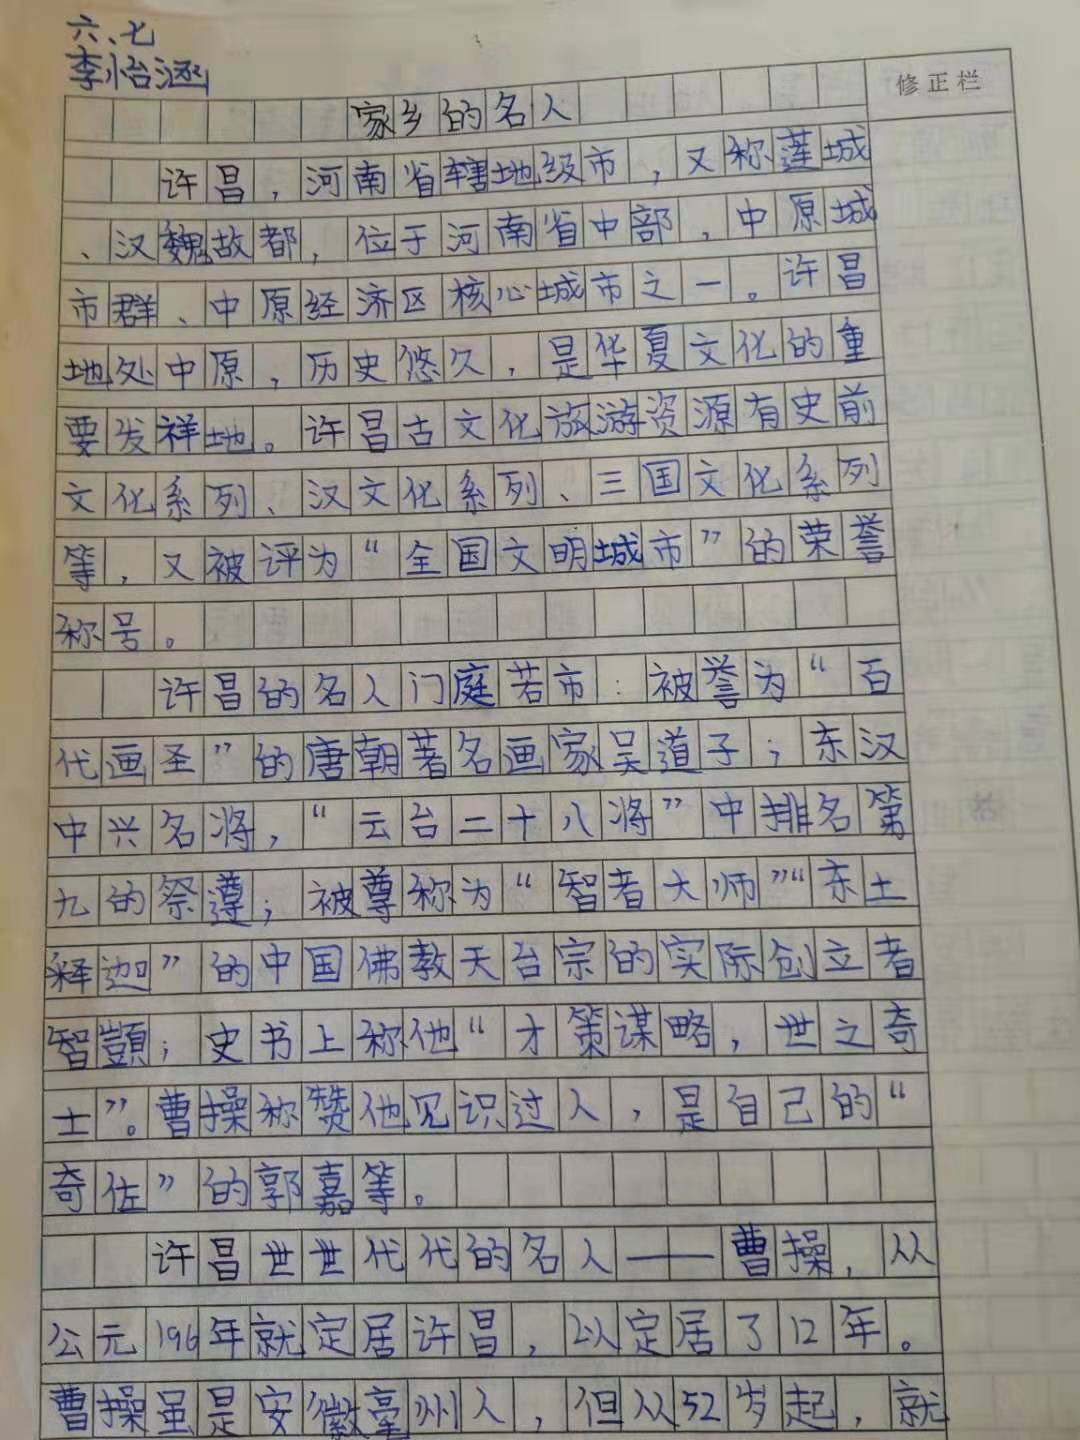 六、七
李怡涵
修正栏
家乡的名人
许昌，河南省辖地级市，又称莲城
、汉魏故都，位于河南省中部，中原城
市群、中原经济区核心城市之一。许昌
地处中原，历史悠久，是华夏文化的重
要发祥地。许昌古文化旅游资源有史前
文化系列、汉文化系列、三国文化系列
等，又被评为“全国文明城市”的荣誉
称号。
许昌的名人门庭若市：被誉为“百
代画圣”的唐朝著名画家吴道子；东汉
中兴名将，“云台二十八将”中排名第
九的祭遵；被尊称为“智者大师”“东土
释迦”的中国佛教天台宗的实际创立者
智顗；史书上称他“才策谋略，世之奇
士”。曹操称赞他见识过人，是自己的“
奇佐”的郭嘉等。
许昌世世代代的名人——曹操，从
公元196年就定居许昌，以定居了12年。
曹操虽是安徽亳州人，但从52岁起，就